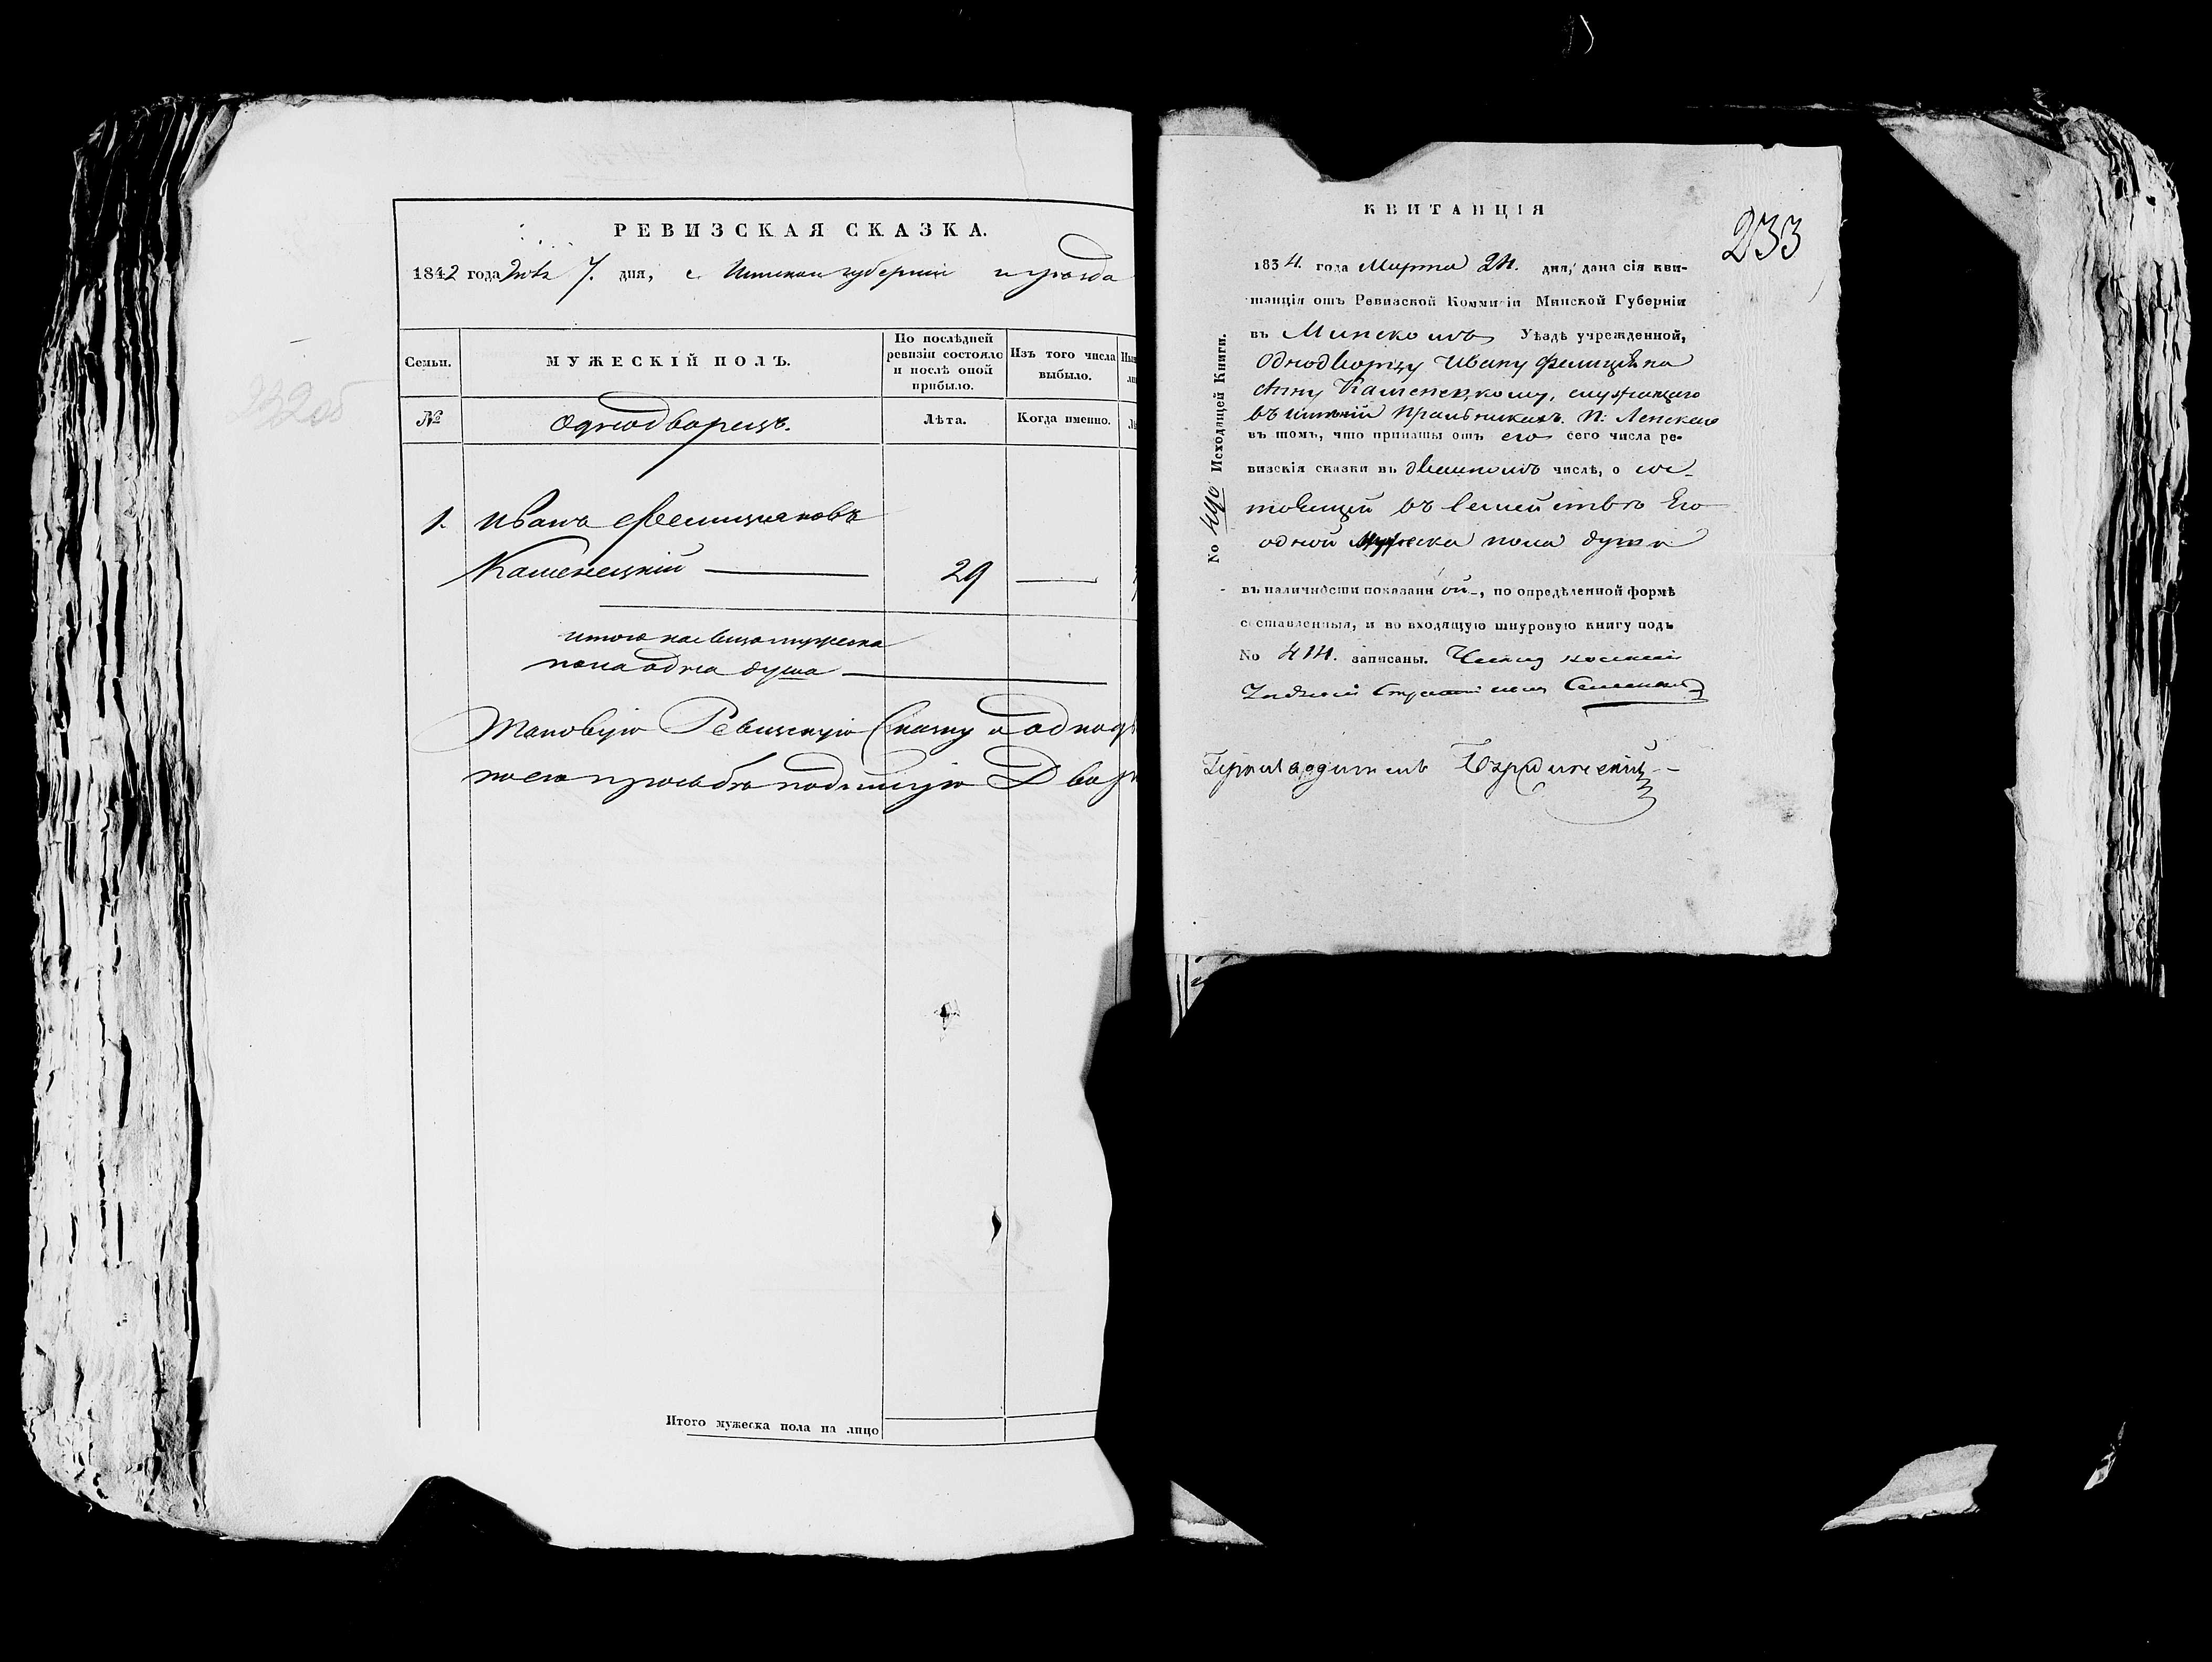 РЕВИЗСКАЯ СКАЗКА.
1842 года 7. дня, Минской губерніи и уѣзда
Семьи.
МУЖЕСКІЙ ПОЛЪ.
По послѣдней ревизіи состояло и послѣ оной прибыло.
Изъ того числа выбыло.
№
Однодворецъ.
Лѣта.
Когда именно.
1. Иванъ Фелиціановъ
Каменецкій 29
итого на лицо мужеска
пола одна душа
Таковую Ревизскую Сказку о однод
по его просьбѣ подписую Двор
Итого мужеска пола на лицо
232об
КВИТАНЦІЯ
233
1834. года Марта 24. дня, дана сія кви-
танція отъ Ревизской Коммисіи Минской Губерніи
въ Минскомъ Уѣздѣ учрежденной,
Однодворцу Ивану Фелиціяно
Каменецкому, служащаго
въ имѣніи Прильникахъ. П: Ленскаго
въ томъ, что приняты отъ его сего числа ре-
визскія сказки въ двойномъ числѣ, о сос-
тоящей въ семействѣ Его
одной мужеска пола души
въ наличности показанной, по опредѣленной формѣ
составленныя, и во входящую шнуровую книгу подъ
No 414. записаны.
No 490 Исходящей Книги.